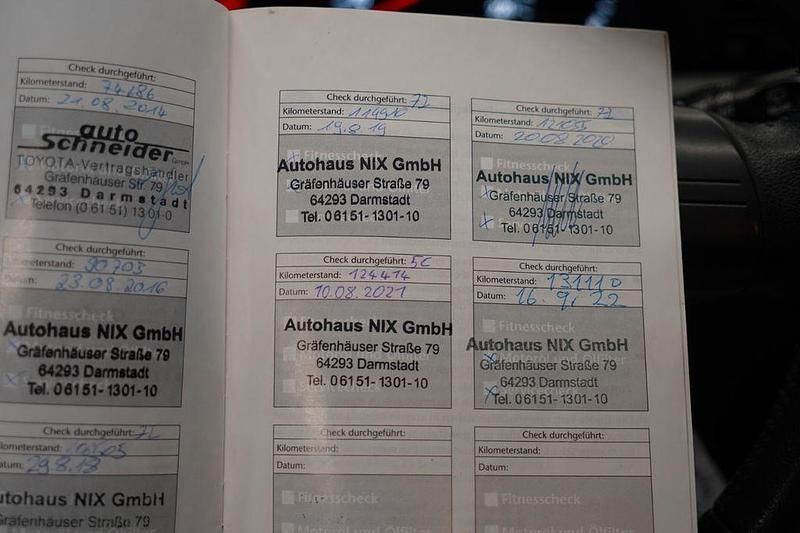 Check durchgeführt:
Kilometerstand: 74186
Datum: 21.08.2014
auto
Schneider GmbH
TOYOTA-Vertragshändler
Gräfenhäuser Str. 79
64293 Darmstadt
Telefon (0 61 51) 13 01-0
Check durchgeführt:
Kilometerstand: 90703
Datum: 23.08.2016
Fitnesscheck
Autohaus NIX GmbH
Gräfenhäuser Straße 79
64293 Darmstadt
Tel. 06151- 1301-10
Check durchgeführt:
Kilometerstand:
Datum: 29.8.18
Autohaus NIX GmbH
Gräfenhäuser Straße 79
Check durchgeführt:
Kilometerstand:
Datum: 19.8.19
Fitnesscheck
Autohaus NIX GmbH
Gräfenhäuser Straße 79
64293 Darmstadt
Tel. 06151- 1301-10
Check durchgeführt:
Kilometerstand:
Datum: 20.08.2020
Fitnesscheck
Autohaus NIX GmbH
Gräfenhäuser Straße 79
64293 Darmstadt
Tel. 06151- 1301-10
Check durchgeführt:
Kilometerstand: 124414
Datum: 10.08.2021
Autohaus NIX GmbH
Gräfenhäuser Straße 79
64293 Darmstadt
Tel. 06151- 1301-10
Check durchgeführt:
Kilometerstand: 131110
Datum: 16.9.22
Fitnesscheck
Autohaus NIX GmbH
Gräfenhäuser Straße 79
64293 Darmstadt
Tel. 06151- 1301-10
Check durchgeführt:
Kilometerstand:
Datum:
Fitnesscheck
Motoröl und Ölfilter
Check durchgeführt:
Kilometerstand:
Datum:
Fitnesscheck
Motoröl und Ölfilter